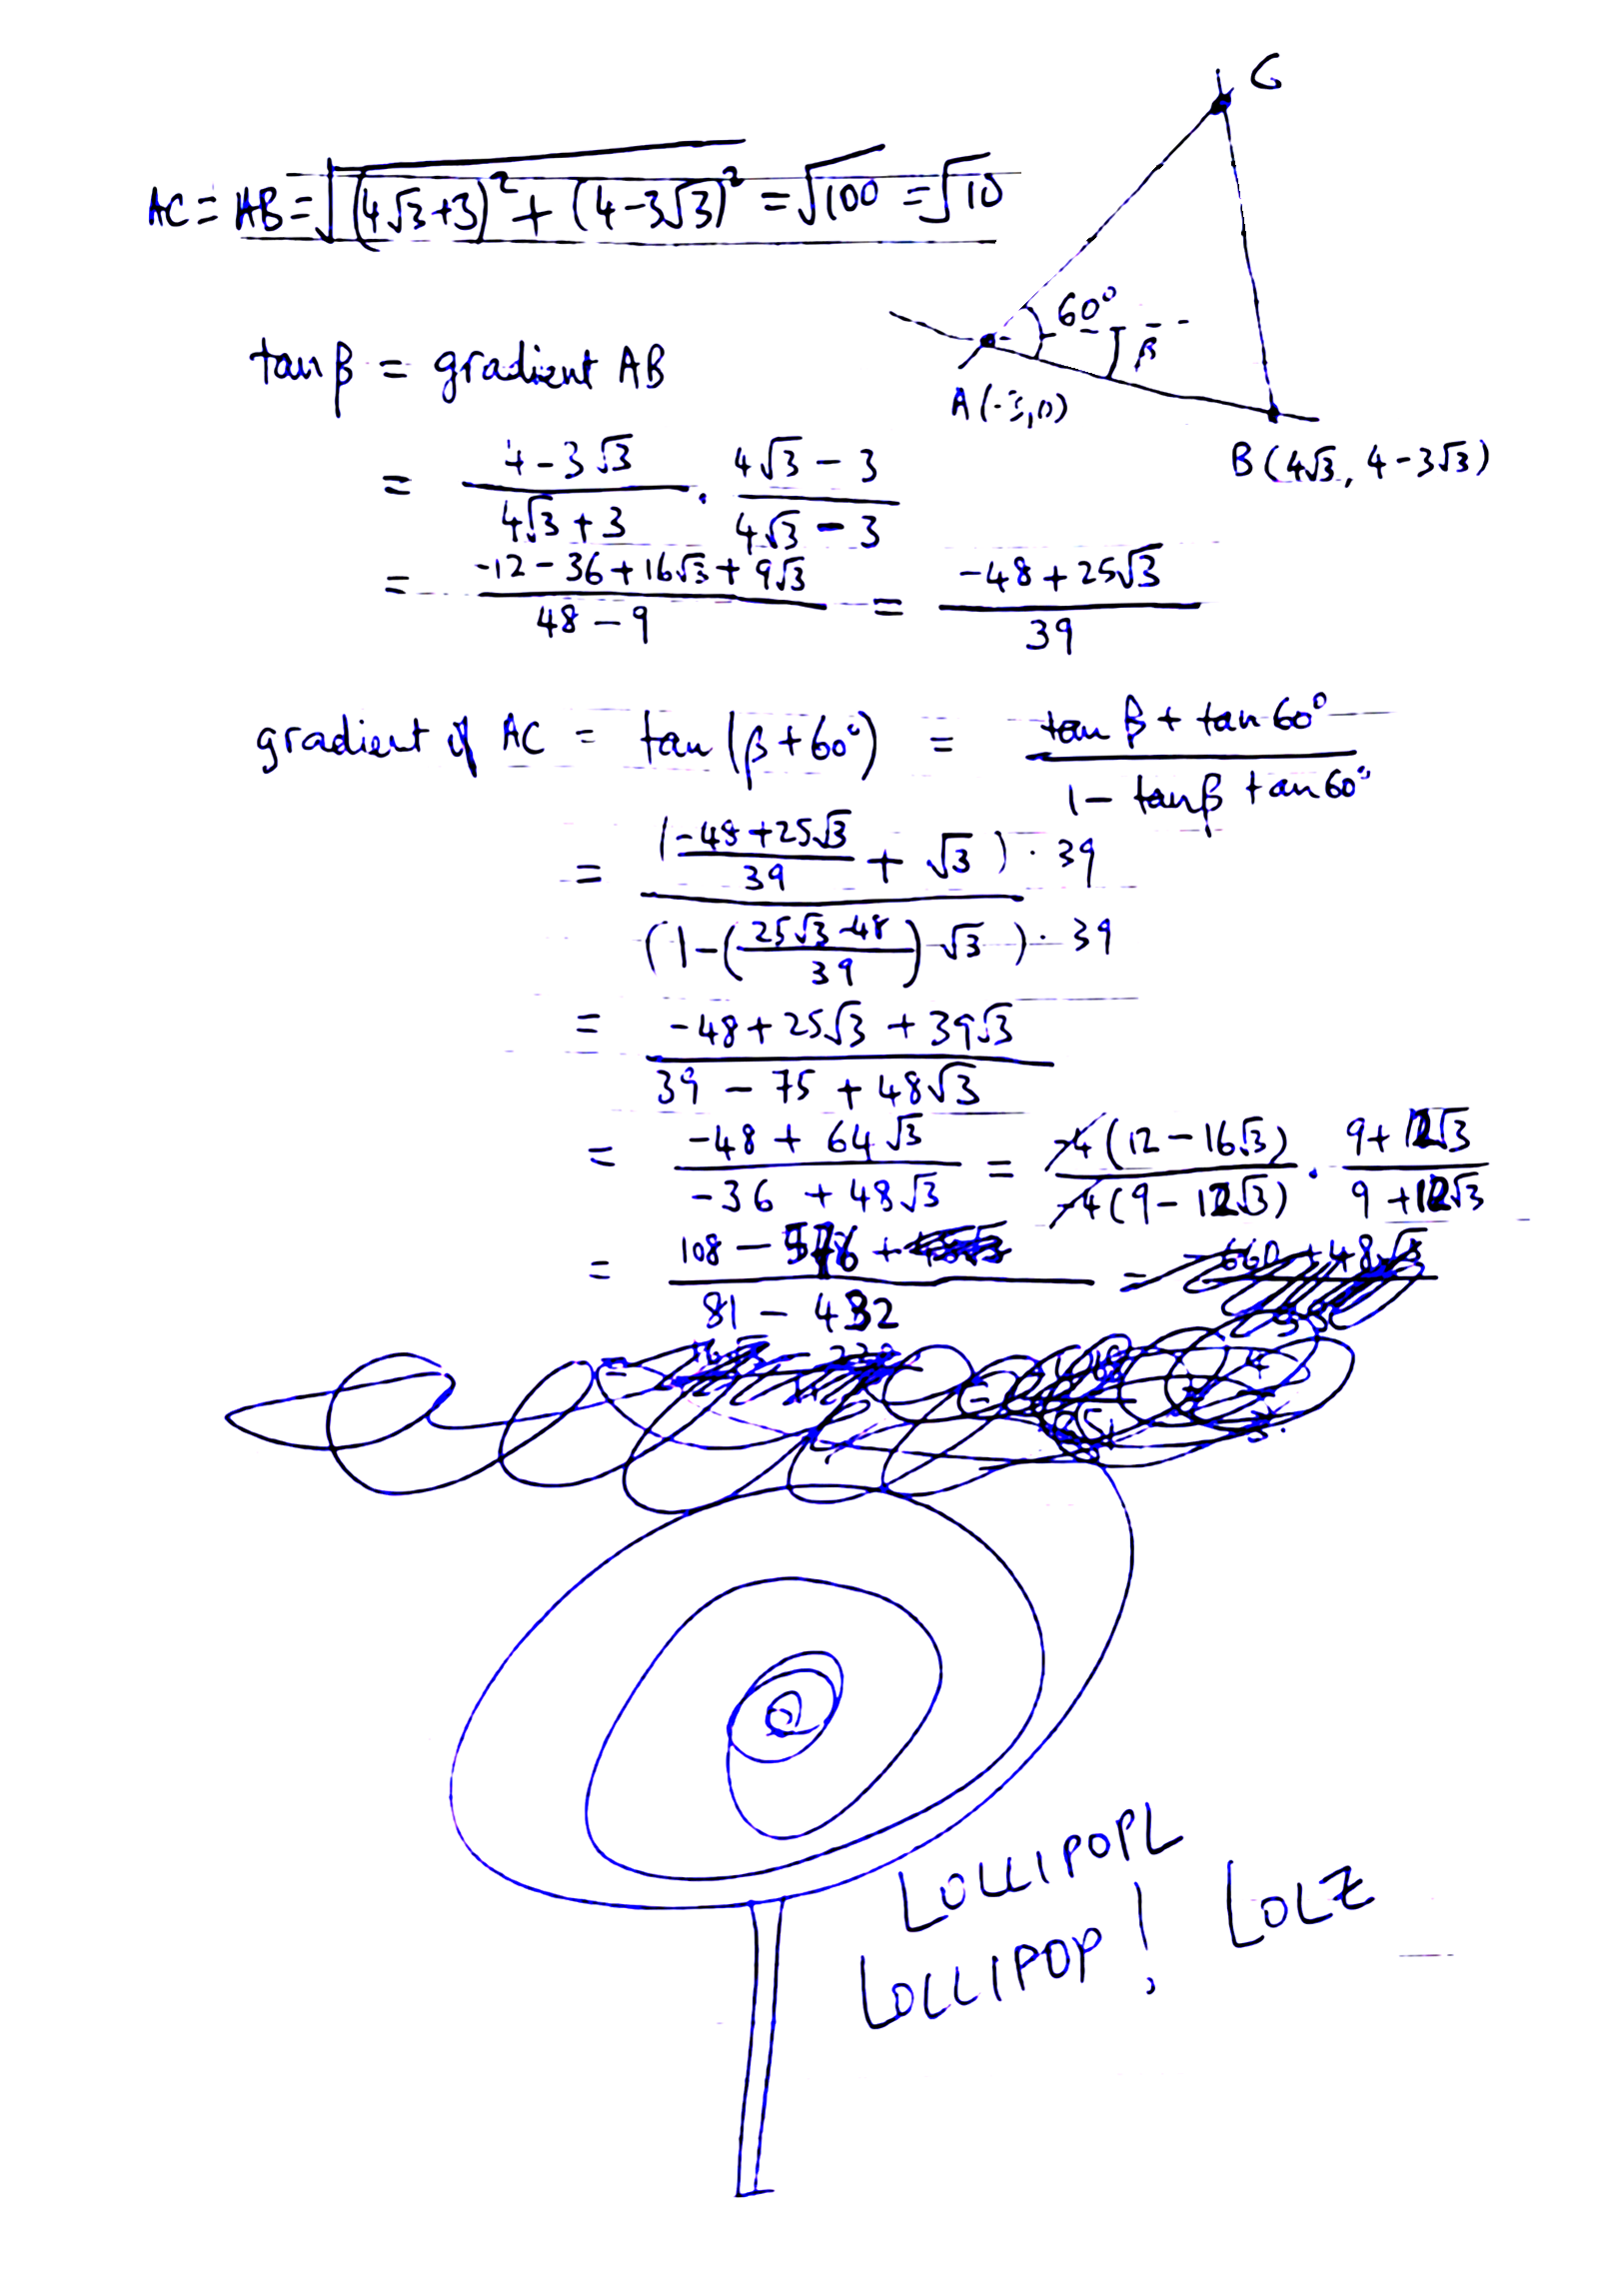 C
AC = AB = √((4√3+3)² + (4-3√3)²) = √100 = √10
60°
β
tan β = gradient AB
A(-3,0)
B(4√3, 4-3√3)
= (4-3√3)/(4√3+3) · (4√3-3)/(4√3-3)
= (-12-36+16√3+9√3)/(48-9) = (-48+25√3)/39
gradient of AC = tan(β+60°) = (tan β + tan 60°)/(1 - tan β tan 60°)
= ((-48+25√3)/39 + √3)·39 / (1-((25√3-48)/39)√3)·39
= (-48+25√3+39√3)/(39-75+48√3)
= (-48+64√3)/(-36+48√3) = -4(12-16√3)/-4(9-12√3) · (9+12√3)/(9+12√3)
= (108-576+)/(81-432) =
LOLLIPOPL
LOLLIPOP! LOLZ